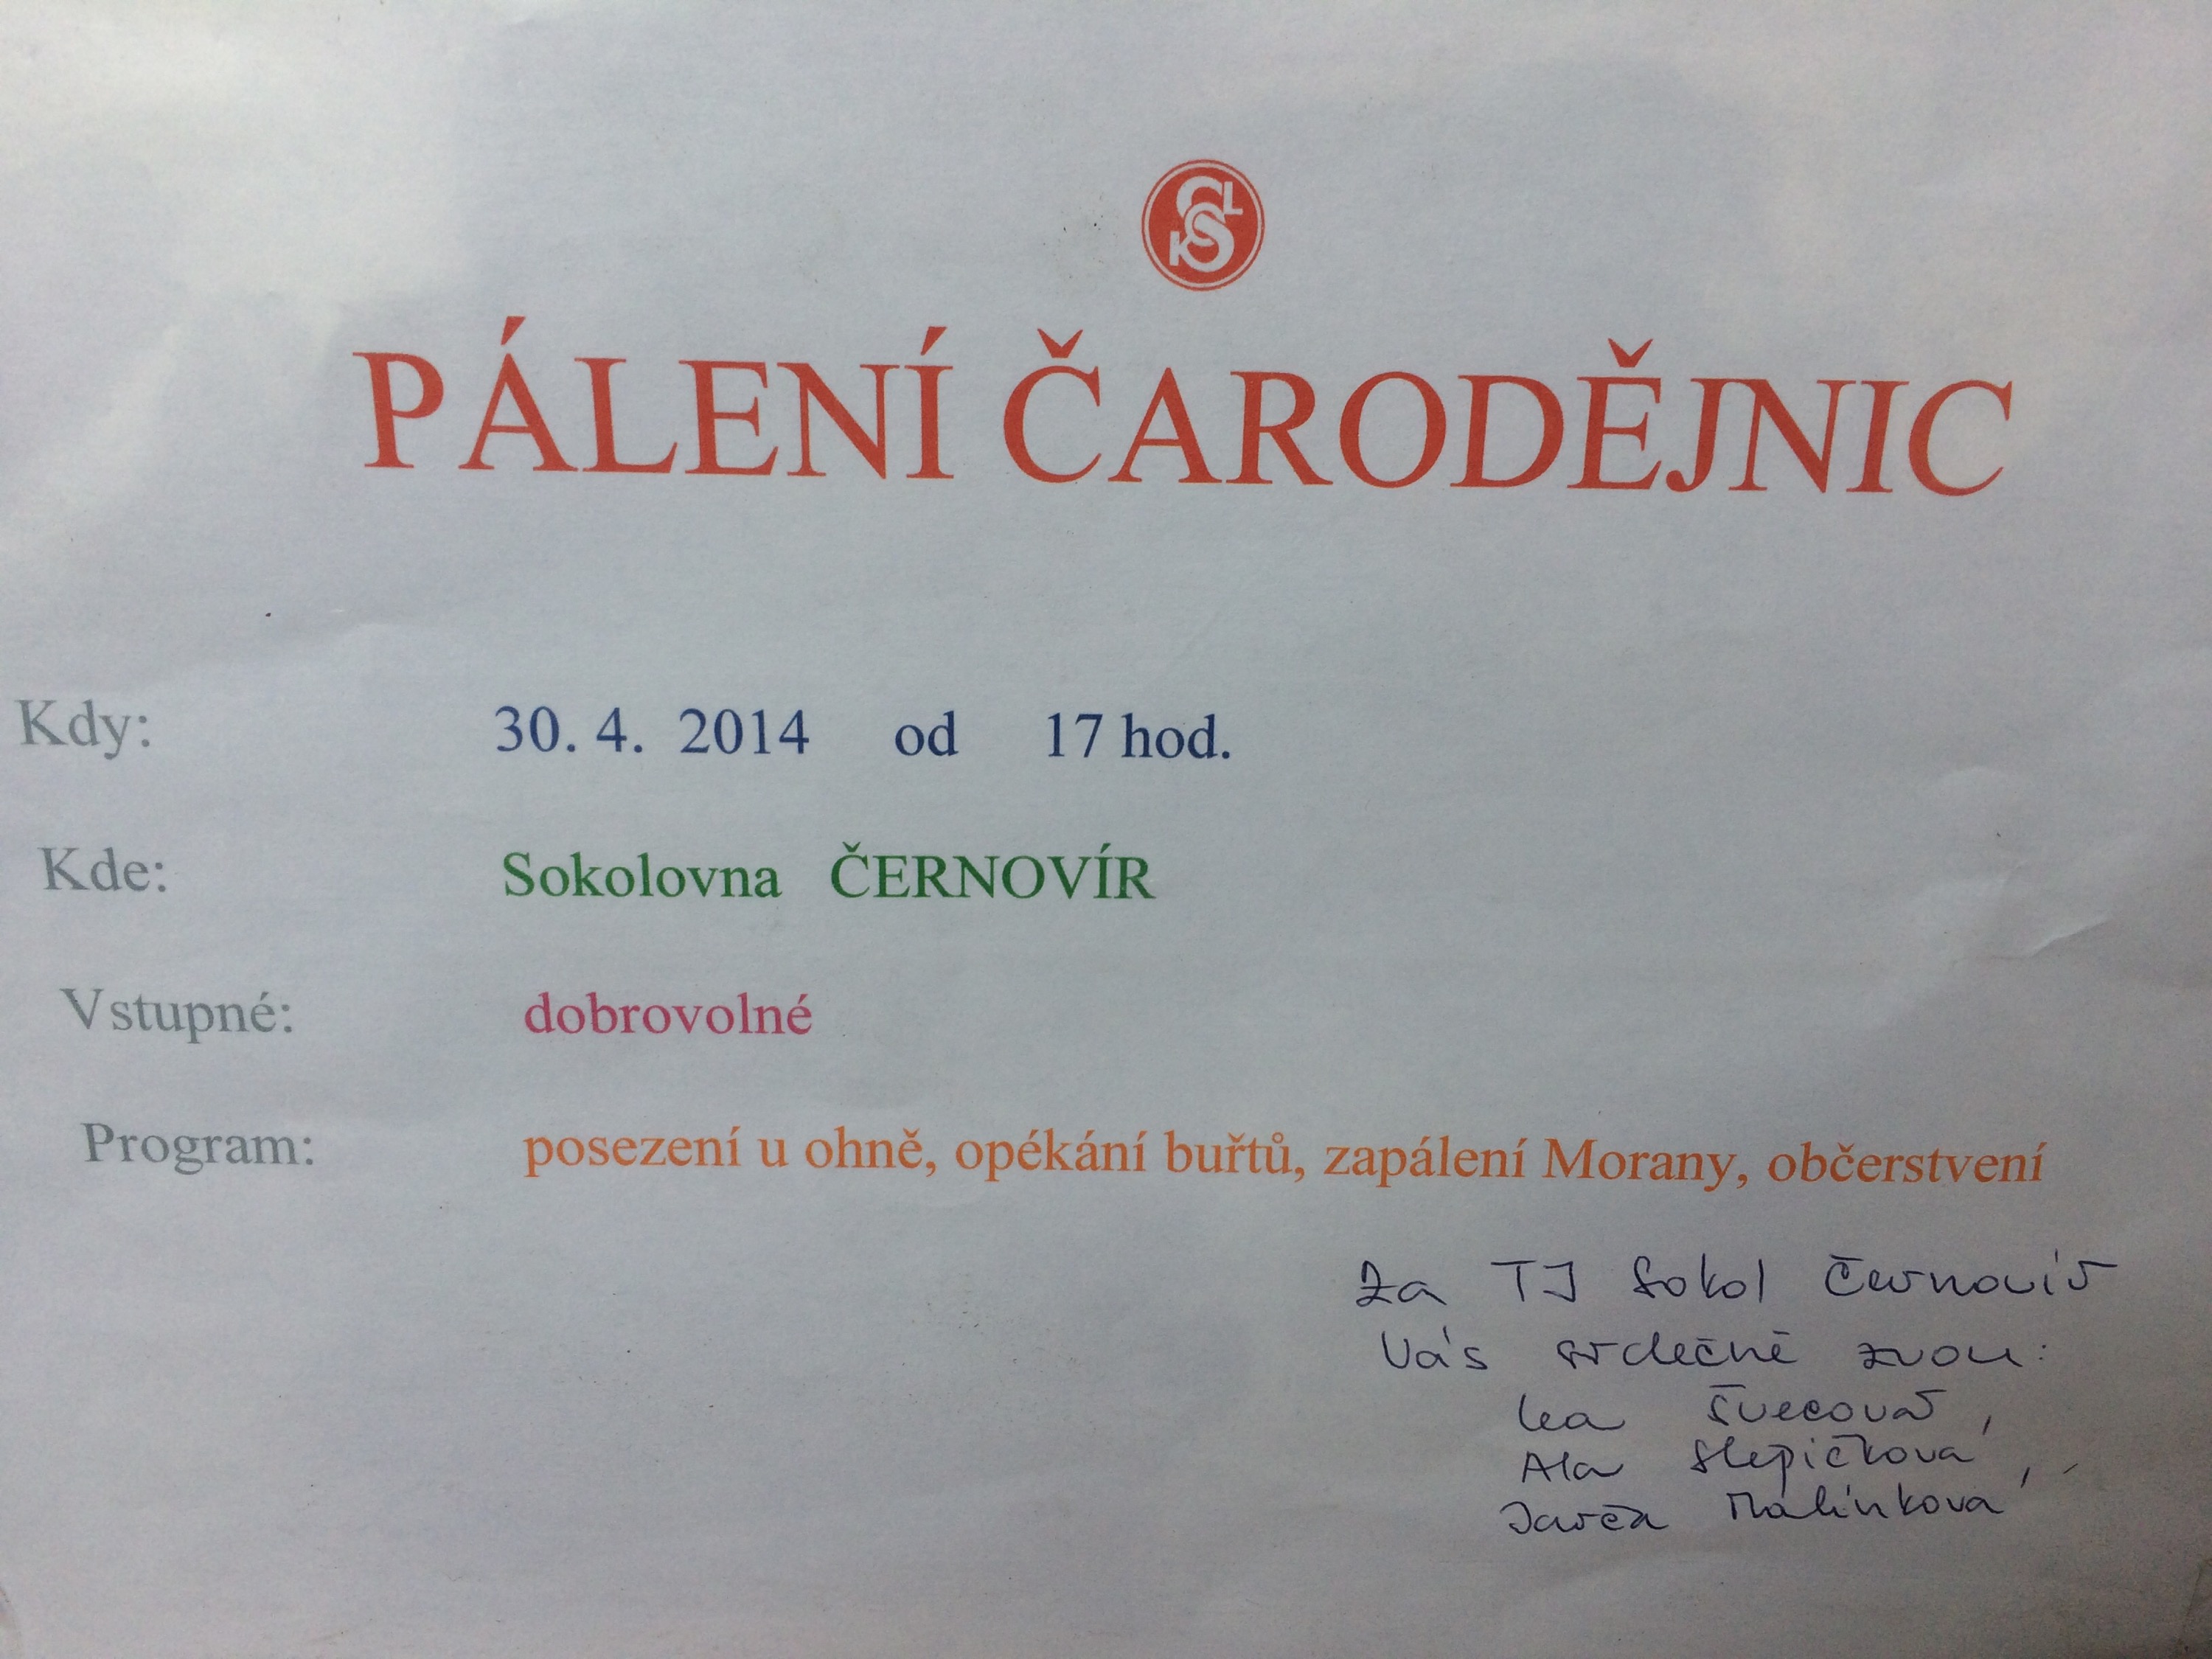 SOKOL
PÁLENÍ ČARODĚJNIC
Kdy: 30. 4. 2014 od 17 hod.
Kde: Sokolovna ČERNOVÍR
Vstupné: dobrovolné
Program: posezení u ohně, opékání buřtů, zapálení Morany, občerstvení
Za TJ Sokol Černovír
Vás srdečně zvou:
Lea Švecová,
Ala Slepičková,
Jarča Malínková